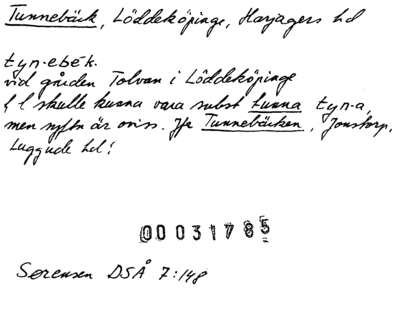 Tunnebäck, Löddeköpinge, Harjagers hd
tyn·ebɛ́k.
vid gården Tolvan i Löddeköpinge
fl skulle kunna vara subst tunna tyn·a,
men syftn är oviss. Jfr Tunnebäcken, Jonstorp,
Luggude hd!
00031785
Sørensen DSÅ 7:148